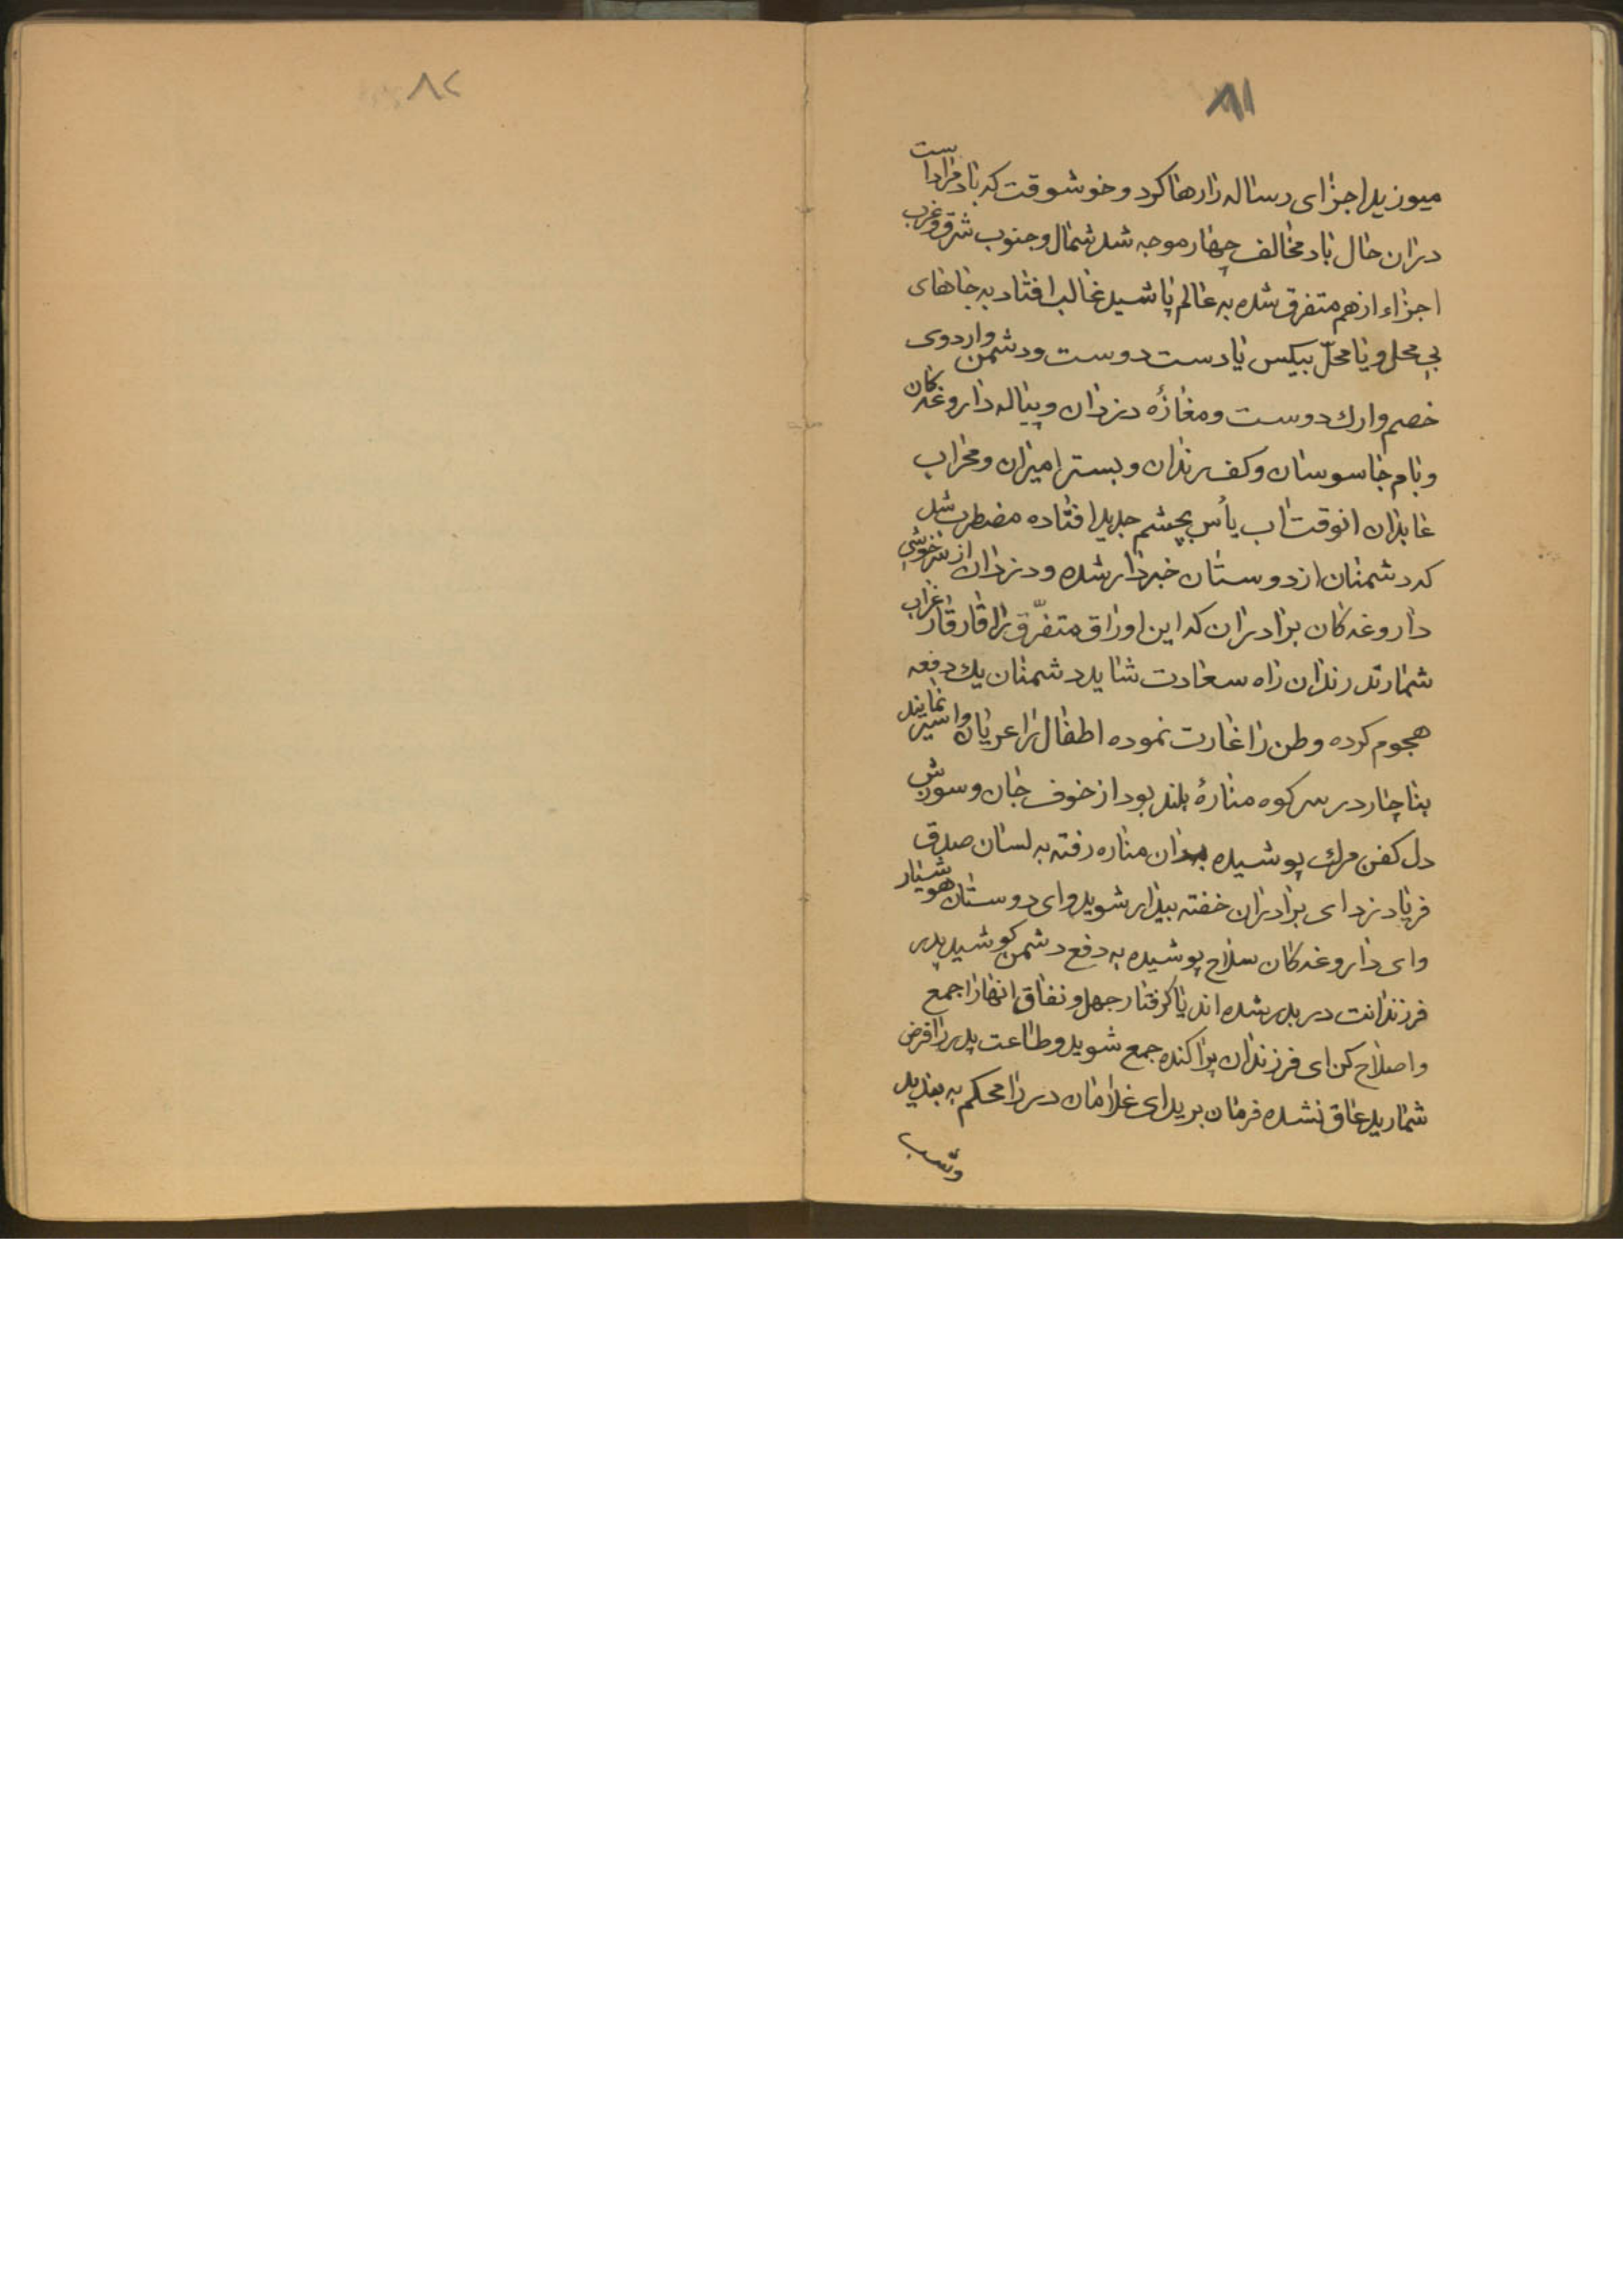 ۸۱
میوزید اجزای رساله را رها کرد و خوشوقت که باد مراد است
دران حال باد مخالف چهار موجه شد شمال و جنوب شرق و غرب
اجزاء از هم متفرق شده به عالم پاشید غالب افتاد به جاهای
بی محل و یا محلّ بیکس یا دست دوست و دشمن واردوی
خصم وارك دوست و مغازۀ دزدان و پیاله داروغه کان
و بام جاسوسان و کف رندان و بستر امیران و محراب
عابدان انوقت اب یأس بچشم جدید افتاده مضطرب شد
که دشمنان از دوستان خبردار شده و دزدان از سرخوشی
داروغه کان برادران که این اوراق متفرّق را قارقار غراب
شمارند رندان راه سعادت شاید دشمنان یك دفعه
هجوم کرده وطن را غارت نموده اطفال را عریان واسیر نمایند
بناچار در سر کوه منارۀ بلند بود از خوف جان و سوزش
دل کفن مرك پوشیده بدان مناره رفته به لسان صدق
فریاد زد ای برادران خفته بیدار شوید وای دوستان هوشیار
وای داروغه کان سلاح پوشیده به دفع دشمن کوشید پدر
فرزندانت در بدر شده اند یا کرفتار جهل و نفاق انها را جمع
و اصلاح کن ای فرزندان پراکنده جمع شوید وطاعت پدر را فرض
شمارید عاق نشده فرمان برید ای غلامان در را محکم به بندید
وشب
۸۲